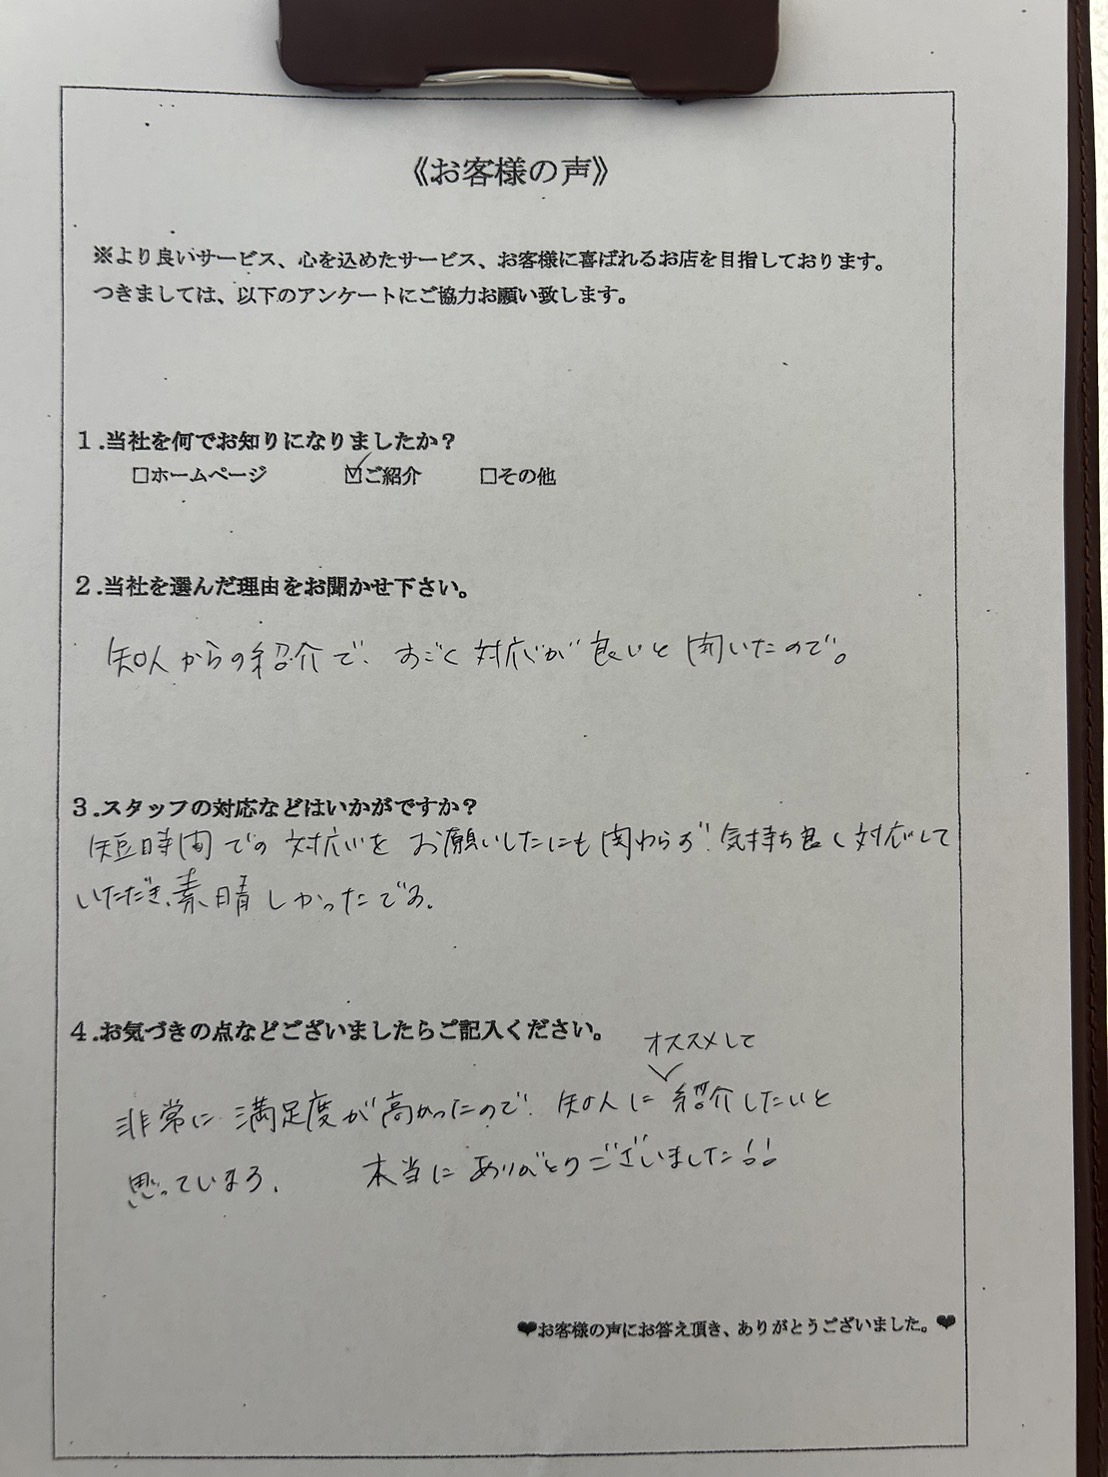 《お客様の声》
※より良いサービス、心を込めたサービス、お客様に喜ばれるお店を目指しております。
つきましては、以下のアンケートにご協力お願い致します。
１.当社を何でお知りになりましたか？
□ホームページ ☑ご紹介 □その他
２.当社を選んだ理由をお聞かせ下さい。
知人からの紹介で、すごく対応が良いと聞いたので。
３.スタッフの対応などはいかがですか？
短時間での対応をお願いしたにも関わらず、気持ち良く対応して
いただき、素晴しかったです。
４.お気づきの点などございましたらご記入ください。
オススメして
非常に満足度が高かったので、知人に紹介したいと
思っています。 本当にありがとうございました!!
❤お客様の声にお答え頂き、ありがとうございました。❤